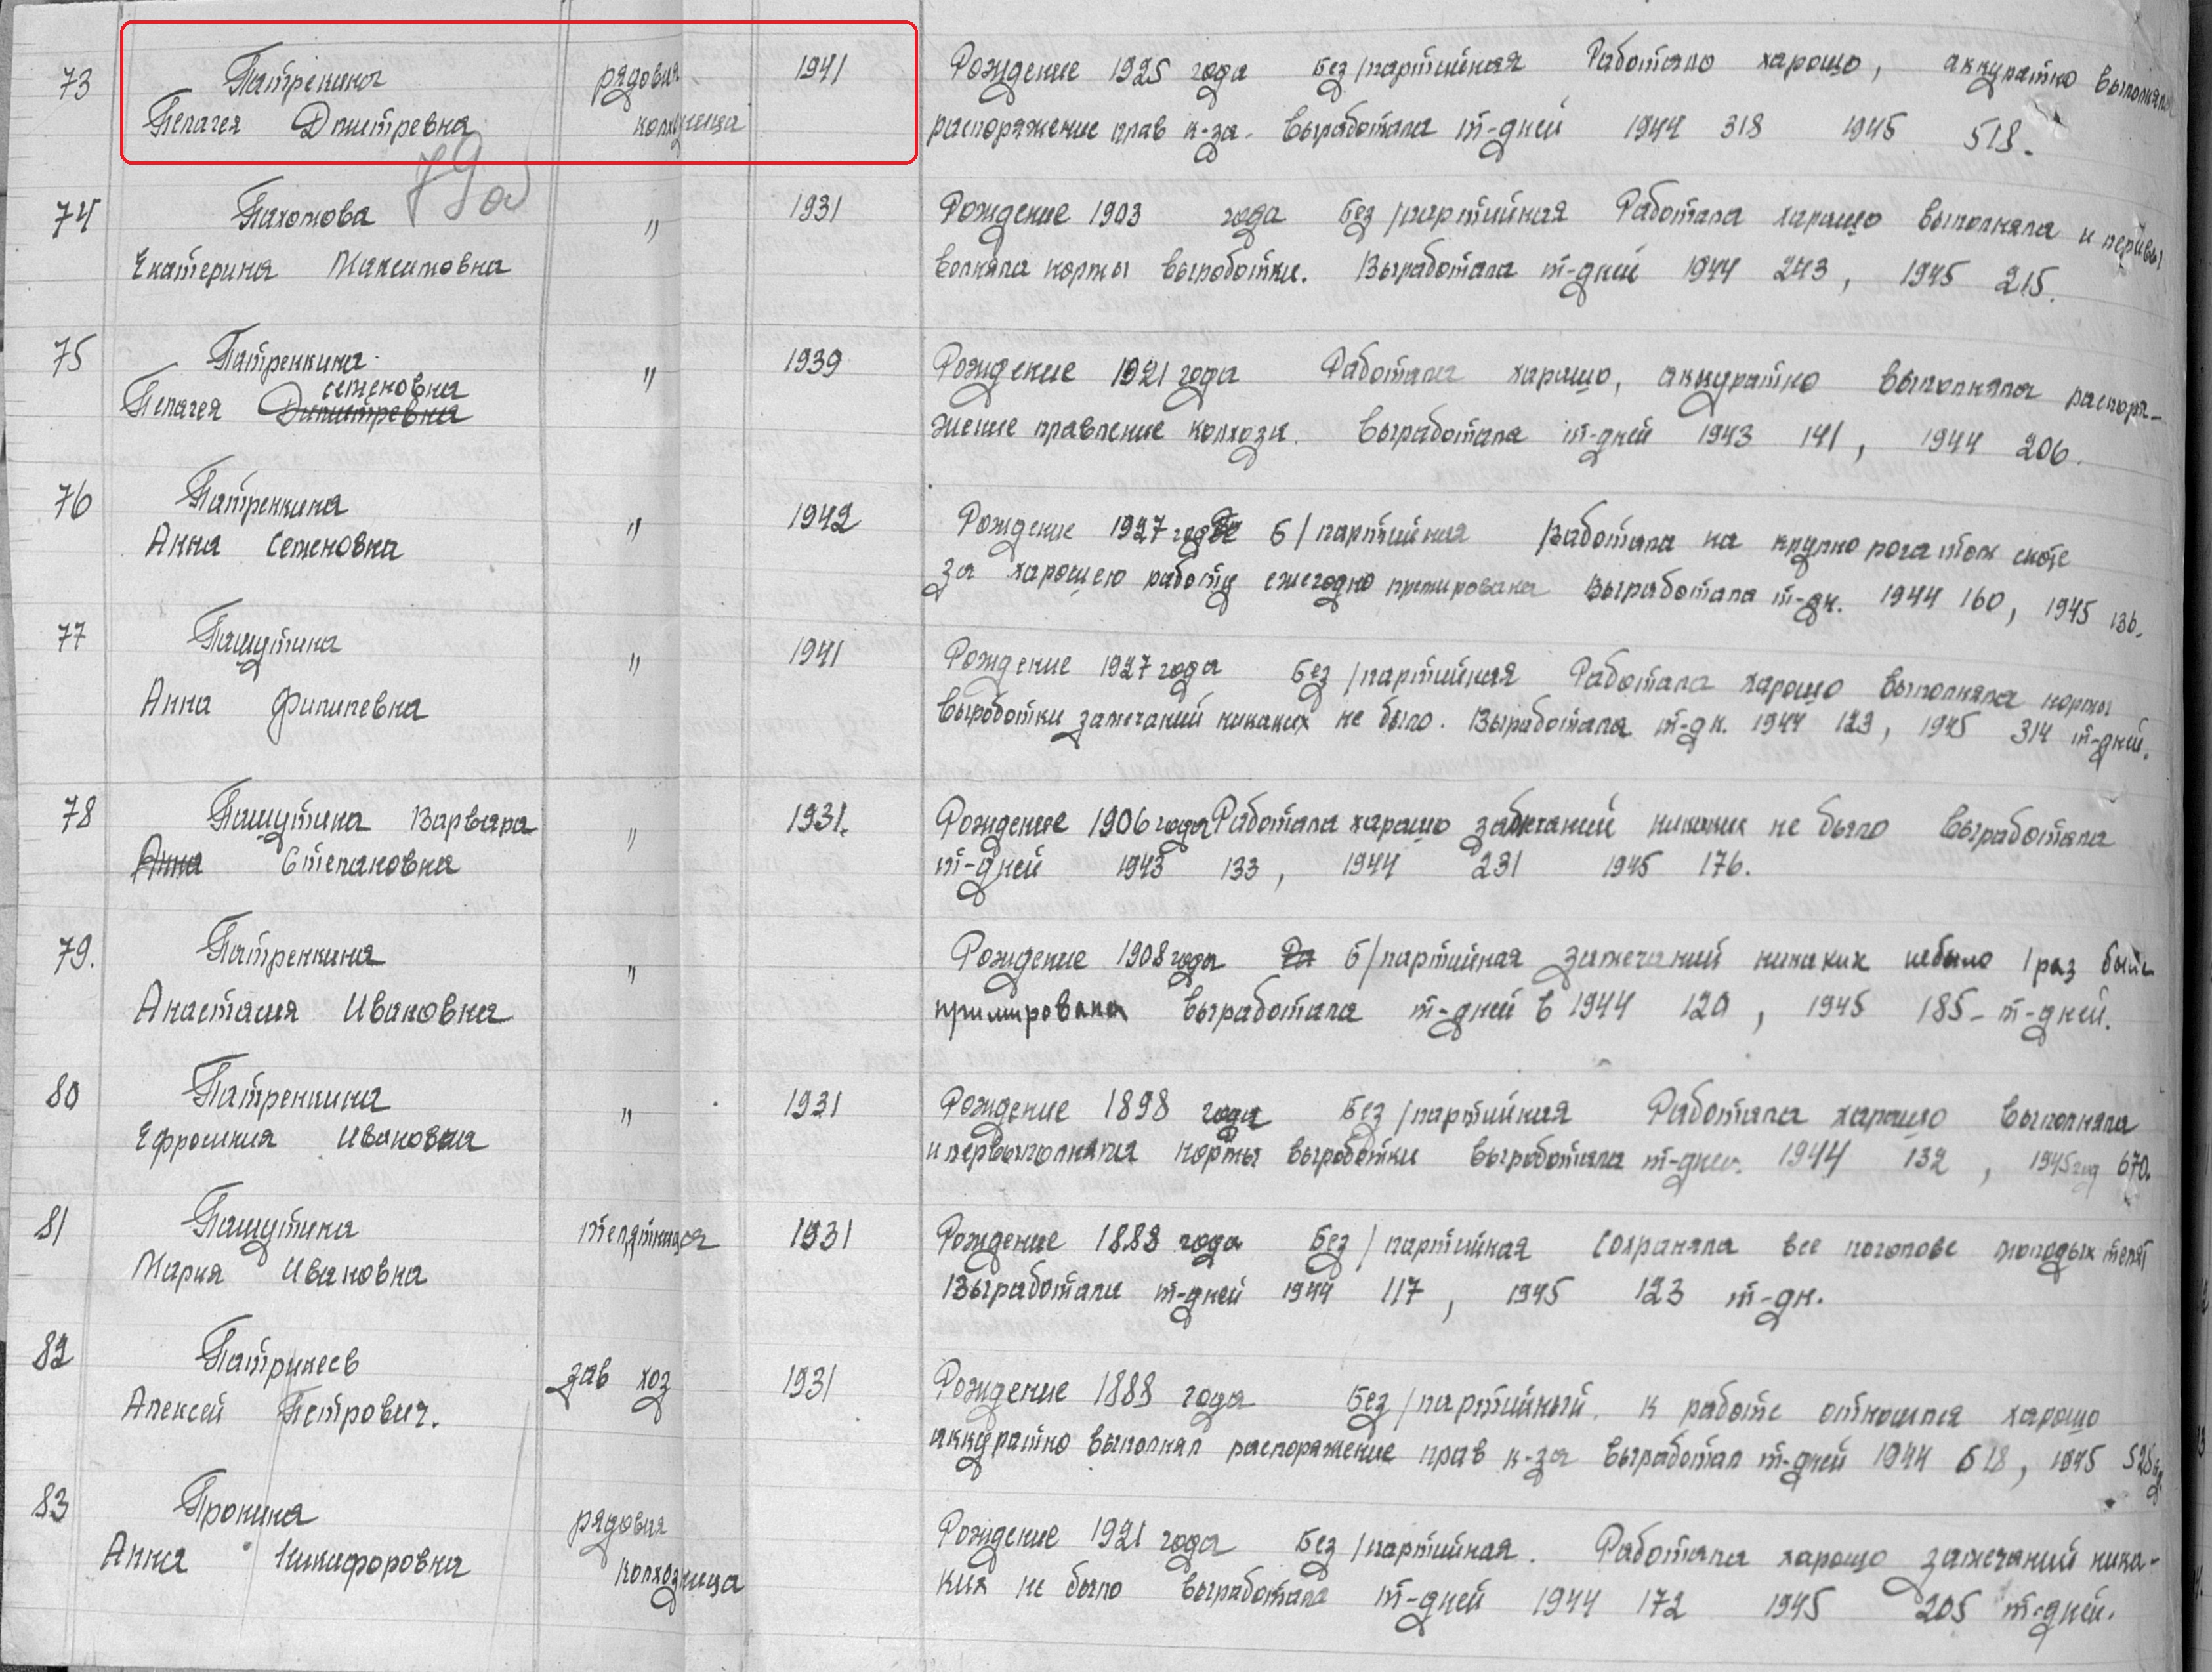 73 Патренкина рядовая 1941 Рождение 1925 года Без/партийная Работала харошо, аккуратно выполняла
Пелагея Дмитревна колхозница распоряжение прав к-за. Выработала т-дней 1944 318 1945 518.
79а
74 Пахомова " 1931 Рождение 1903 года Без/партийная Работала харошо выполняла и перевы
Екатерина Максимовна волняла нормы выроботки. Выработала т-дней 1944 243, 1945 215.
75 Патренкина " 1939 Рождение 1921 года Работала харошо, аккуратно выполняла распоря-
семеновна
Пелагея Дмитревна жение правление колхоза. Выработала т-дней 1943 141, 1944 206.
76 Патренкина " 1942 Рождение 1927 года б/партийная работала на крупно рогатом скоте
Анна Семеновна за харошею работу ежегодно премирована Выработала т-дн. 1944 160, 1945 136.
77 Пашутина " 1941 Рождение 1927 года Без/партийная Работала харошо выполняла нормы
Анна Филипевна выроботки замечаний никаких не было. Выработала т-дн. 1944 123, 1945 314 т-дней.
78 Пашутина Варвара " 1931. Рождение 1906 года Работала харошо замечаний никаких не было выработала
Анна Степановна т-дней 1943 133, 1944 231 1945 176.
79. Патренкина " Рождение 1908 года Ра б/партийная замечаний никаких небыло 1 раз была
Анастасия Ивановна примирована выработала т-дней в 1944 120, 1945 185-т-дней.
80 Патренкина " 1931 Рождение 1898 года Без/партийная Работала харошо выполняла
Ефросиния Ивановна и первыполняла нормы выроботки выроботала т-дней. 1944 132, 1945 год 670.
81 Пашутина телятница 1931 Рождение 1888 года Без/партийная Сохраняла все поголове молодых телят
Мария Ивановна Выработала т-дней 1944 117, 1945 123 т-дн.
82 Патрикеев зав хоз 1931 Рождение 1888 года Без/партийный. К работе относился харошо
Алексей Петрович. аккуратно выполнял распоряжение прав к-за выработал т-дней 1944 618, 1945
83 Пронина рядовая Рождение 1921 года Без/партийная. Работала харошо замечаний ника-
Анна Никифоровна колхозница ких не было выработала т-дней 1944 172 1945 205 т-дней.